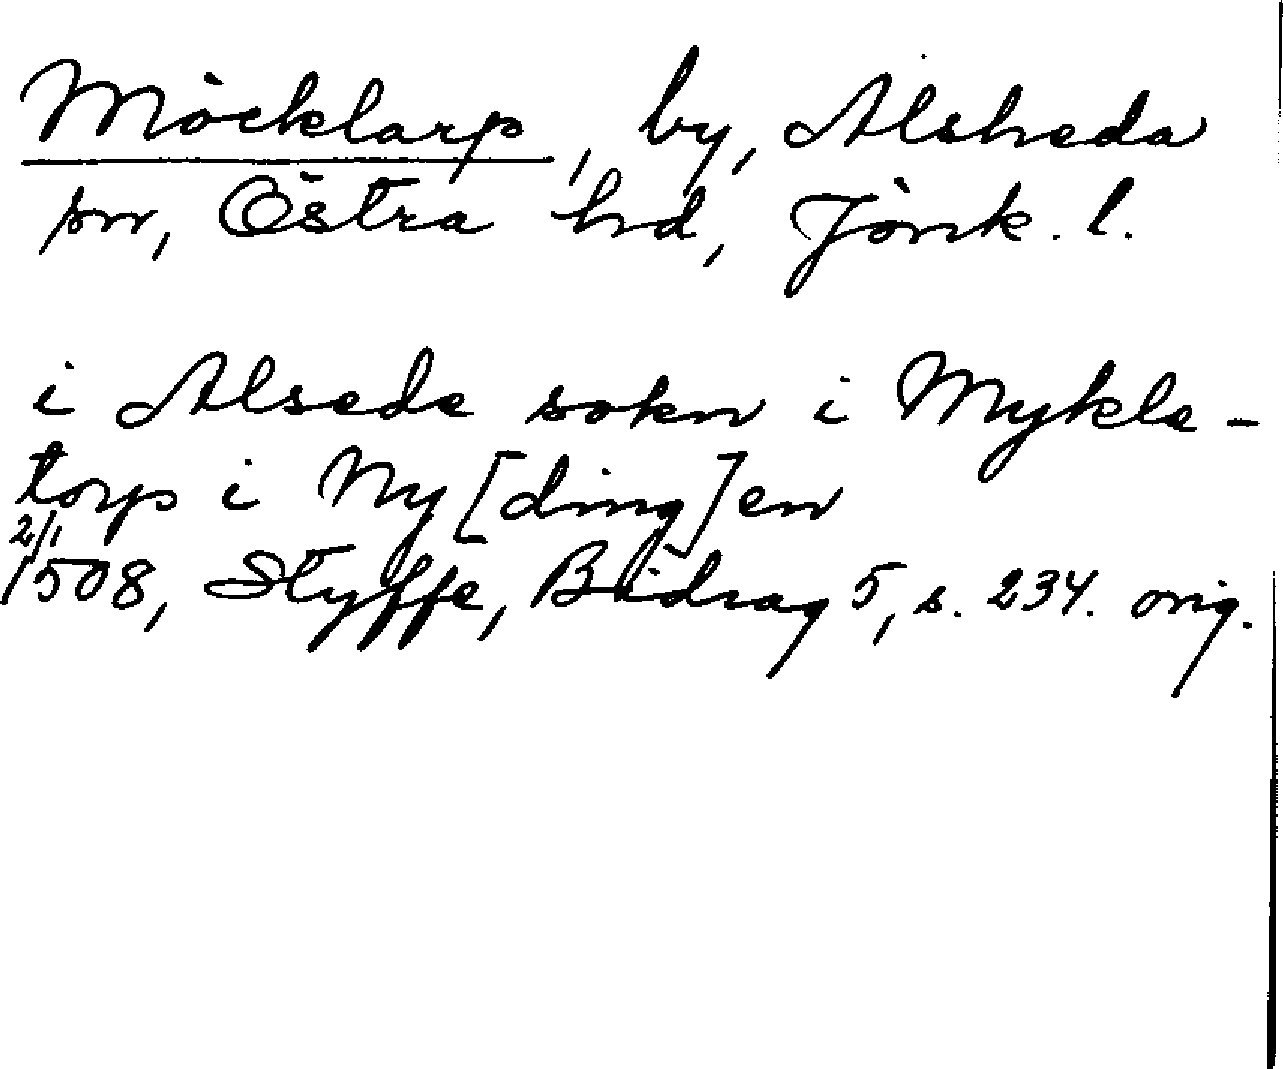 Möcklarp, by, Alsheda
sn, Östra hd, Jönk. l.
i Alsede sokn i Mykle-
torp i Ny[ding]en
2/1
1508, Styffe, Bidrag 5, s. 234. orig.